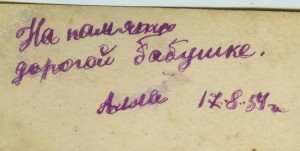 На память
дорогой бабушке.
Алла 17.8.54 г.